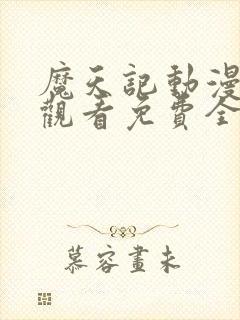 魔天記動漫
觀看免費全
慕容畫未